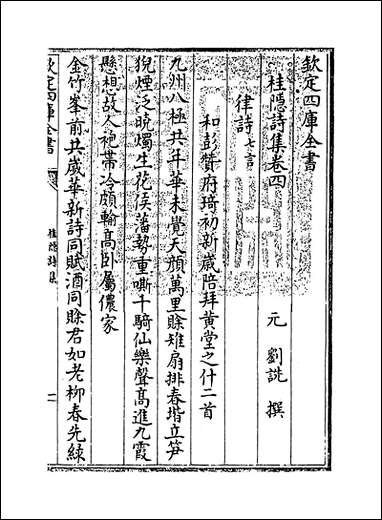 欽定四庫全書
桂隱詩集卷四
元 劉詵 撰
律詩七言
和彭贊府琦初新嵗陪拜黄堂之什二首
九州八極共年華未覺天顔萬里賖雉扇排春堦立笋
猊煙泛曉燭生花侯藩勢重嘶千騎仙樂聲髙進九霞
懸想故人袍帶冷頗輸髙卧屬儂家
金竹峯前共嵗華新詩同賦酒同賖君如老柳春先緑
欽定四庫全書
桂隱詩集
一